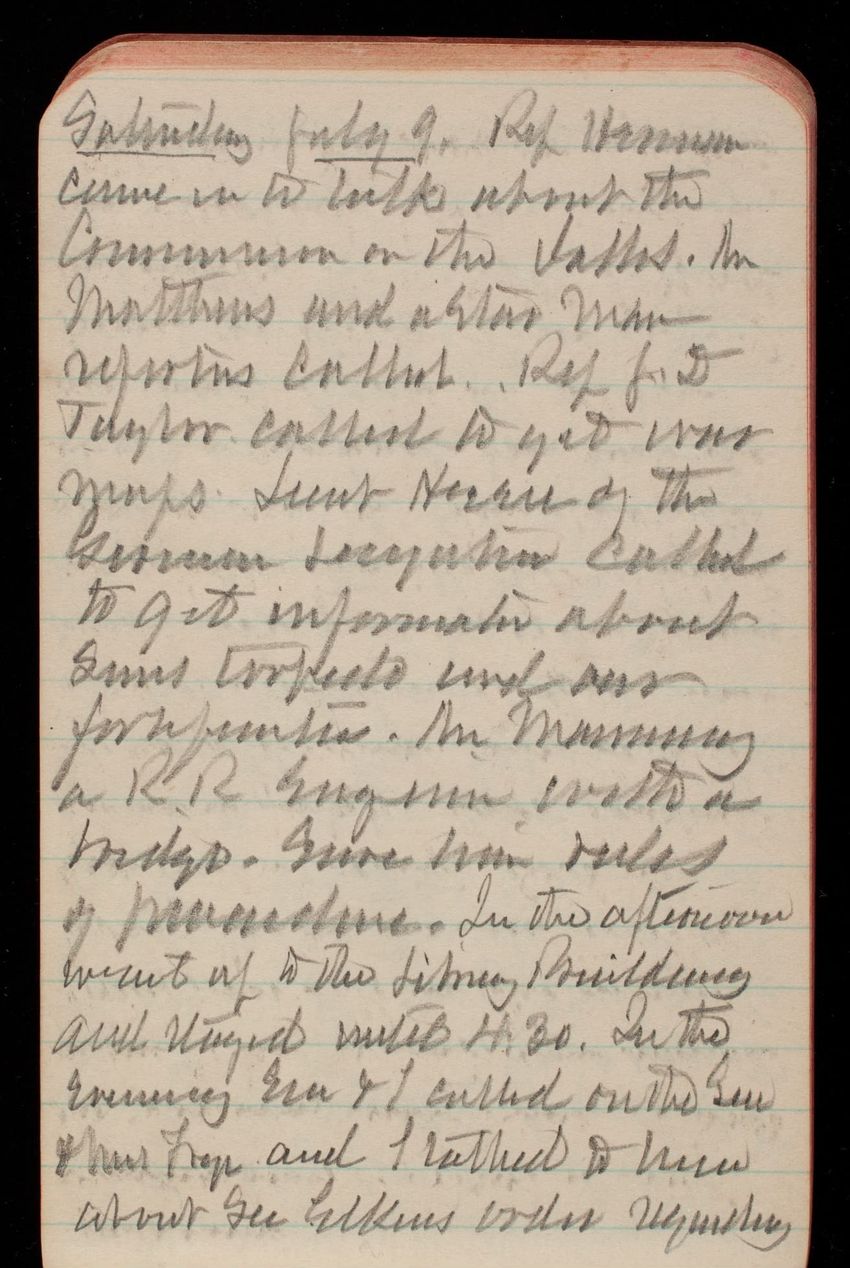 Saturday July 9. Rep Herman
came in to talk about the
Commission on the Dalles. Mr
Matthews and a Star man
reporters called. Rep J. D
Taylor called to get war
maps. Lieut of the
German Legation called
to get informatin about
Guns torpedo and our
fortificatis. Mr Manning
a R.R Engineer with a
bridge. Gave him rules
of procedure. In the afternoon
went up to the Library Building
and stayed until 4.30. In the
evening & I called on the Gen
& Mrs and I talked to him
about Sec Elkins order regarding